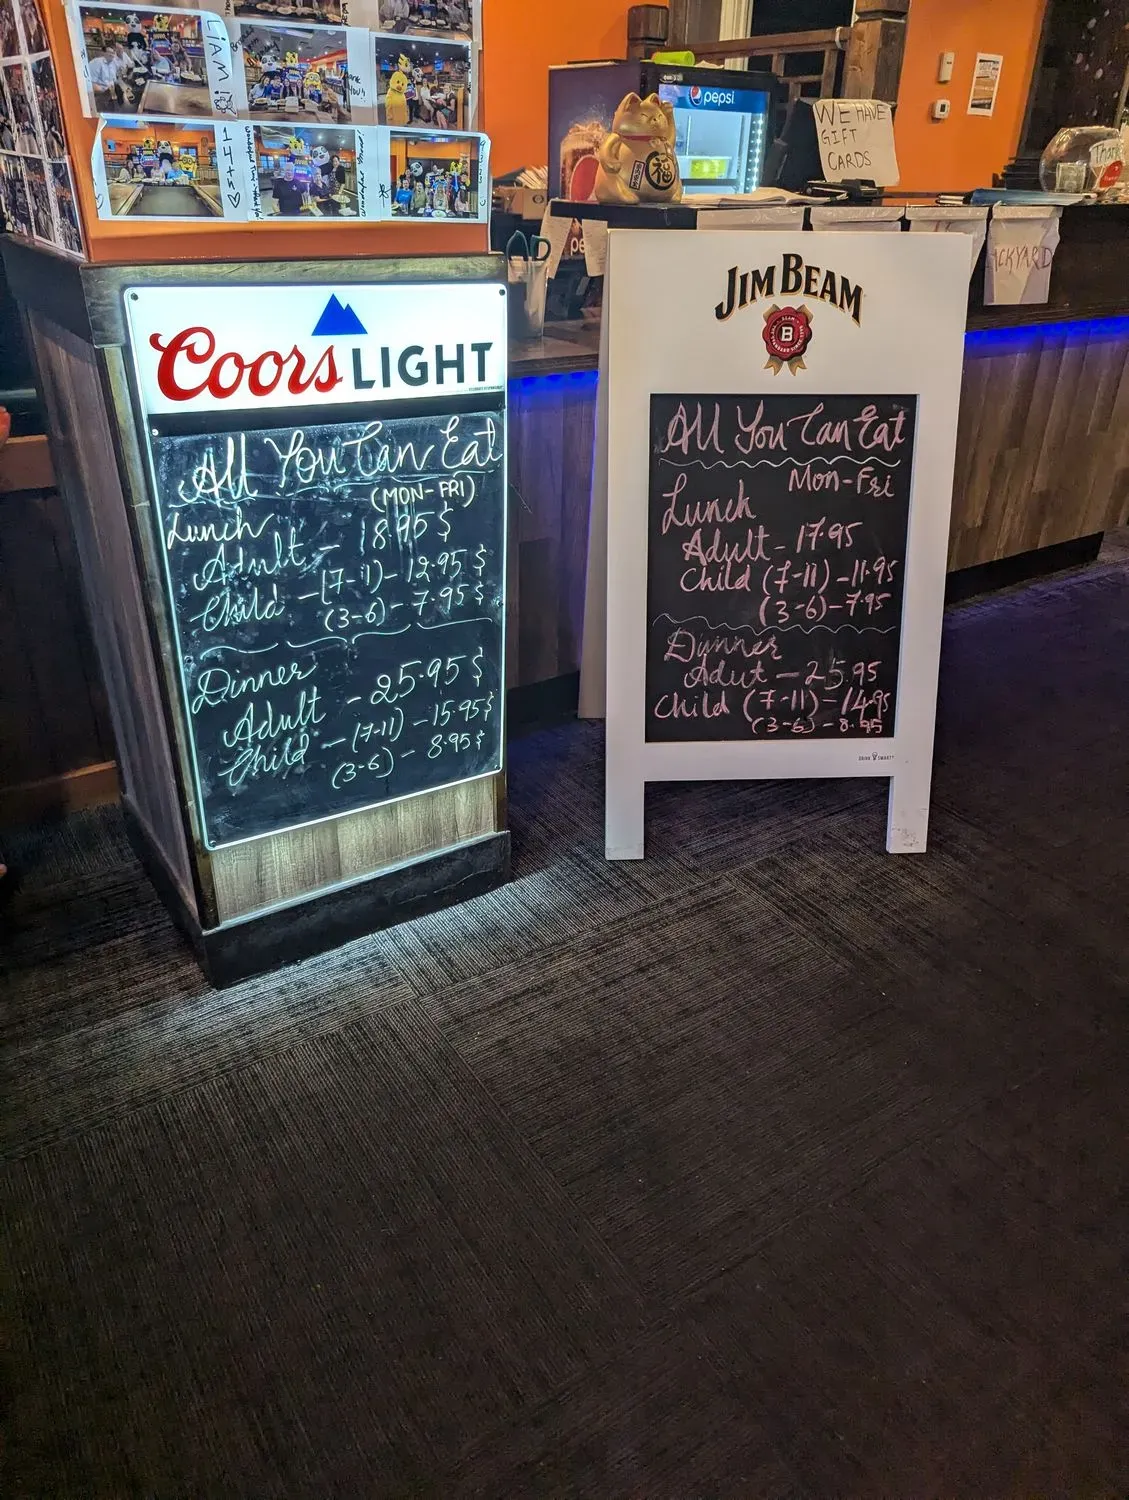 LIAM!
THANK YOU!!
14+5♡
pepsi
WE HAVE
GIFT
CARDS
Thank
CKYARD
Coors LIGHT
All You Can Eat
(MON-FRI)
Lunch
Adult - 18.95 $
Child - (7-11) - 12.95 $
(3-6) - 7.95 $
Dinner
Adult - 25.95 $
Child - (7-11) - 15.95 $
(3-6) - 8.95 $
JIM BEAM
B
All You Can Eat
Mon-Fri
Lunch
Adult - 17.95
Child (7-11) - 11.95
(3-6) - 7.95
Dunner
Adut - 25.95
Child (7-11) - 14.95
(3-6) - 8.95
DRINK SMART